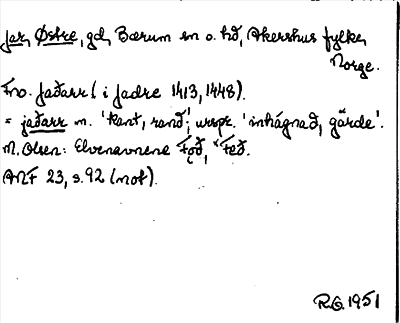 Jar, Østre, gd, Bærum sn o. hd, Akershus fylke,
Norge.
Fno. Jaðarr (i Jadre 1413, 1448).
= jaðarr m. 'kant, rand', urspr. 'inhägnad, gärde'.
M. Olsen: Elvenavnene Fǫð, *Feð.
ANF 23, s. 92 (not).
R.G. 1951